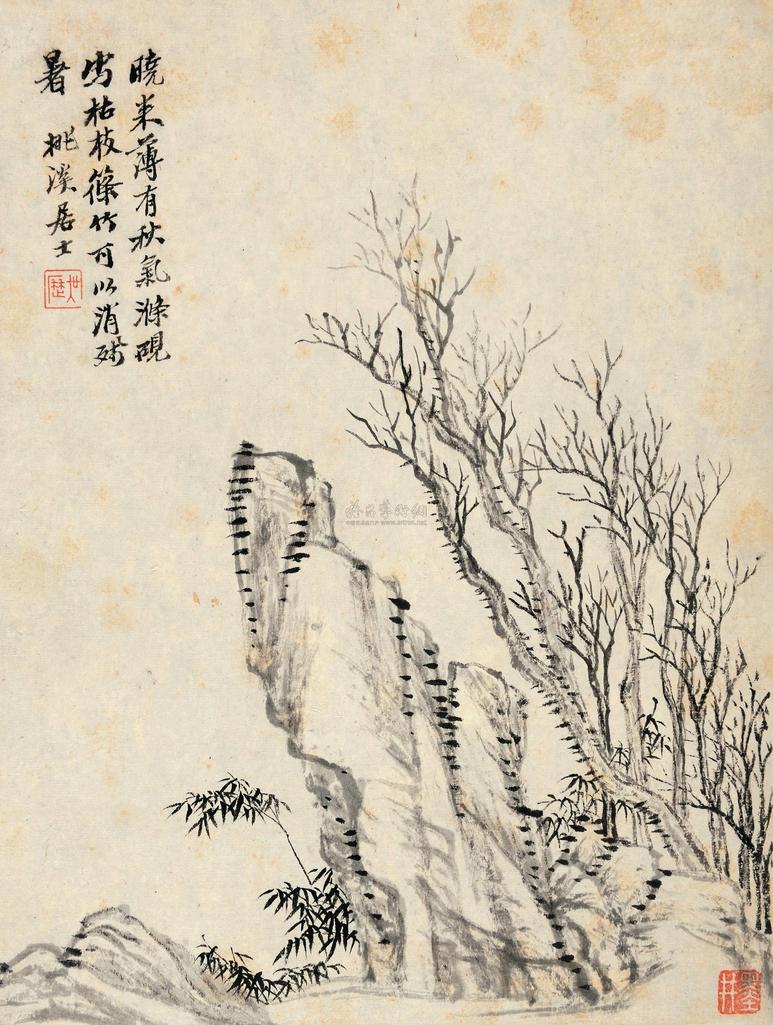 曉來薄有秋氣滌硯
寫枯枝篠竹可以消殘
暑 桃溪居士
世
歷
墨井
www.artron.net